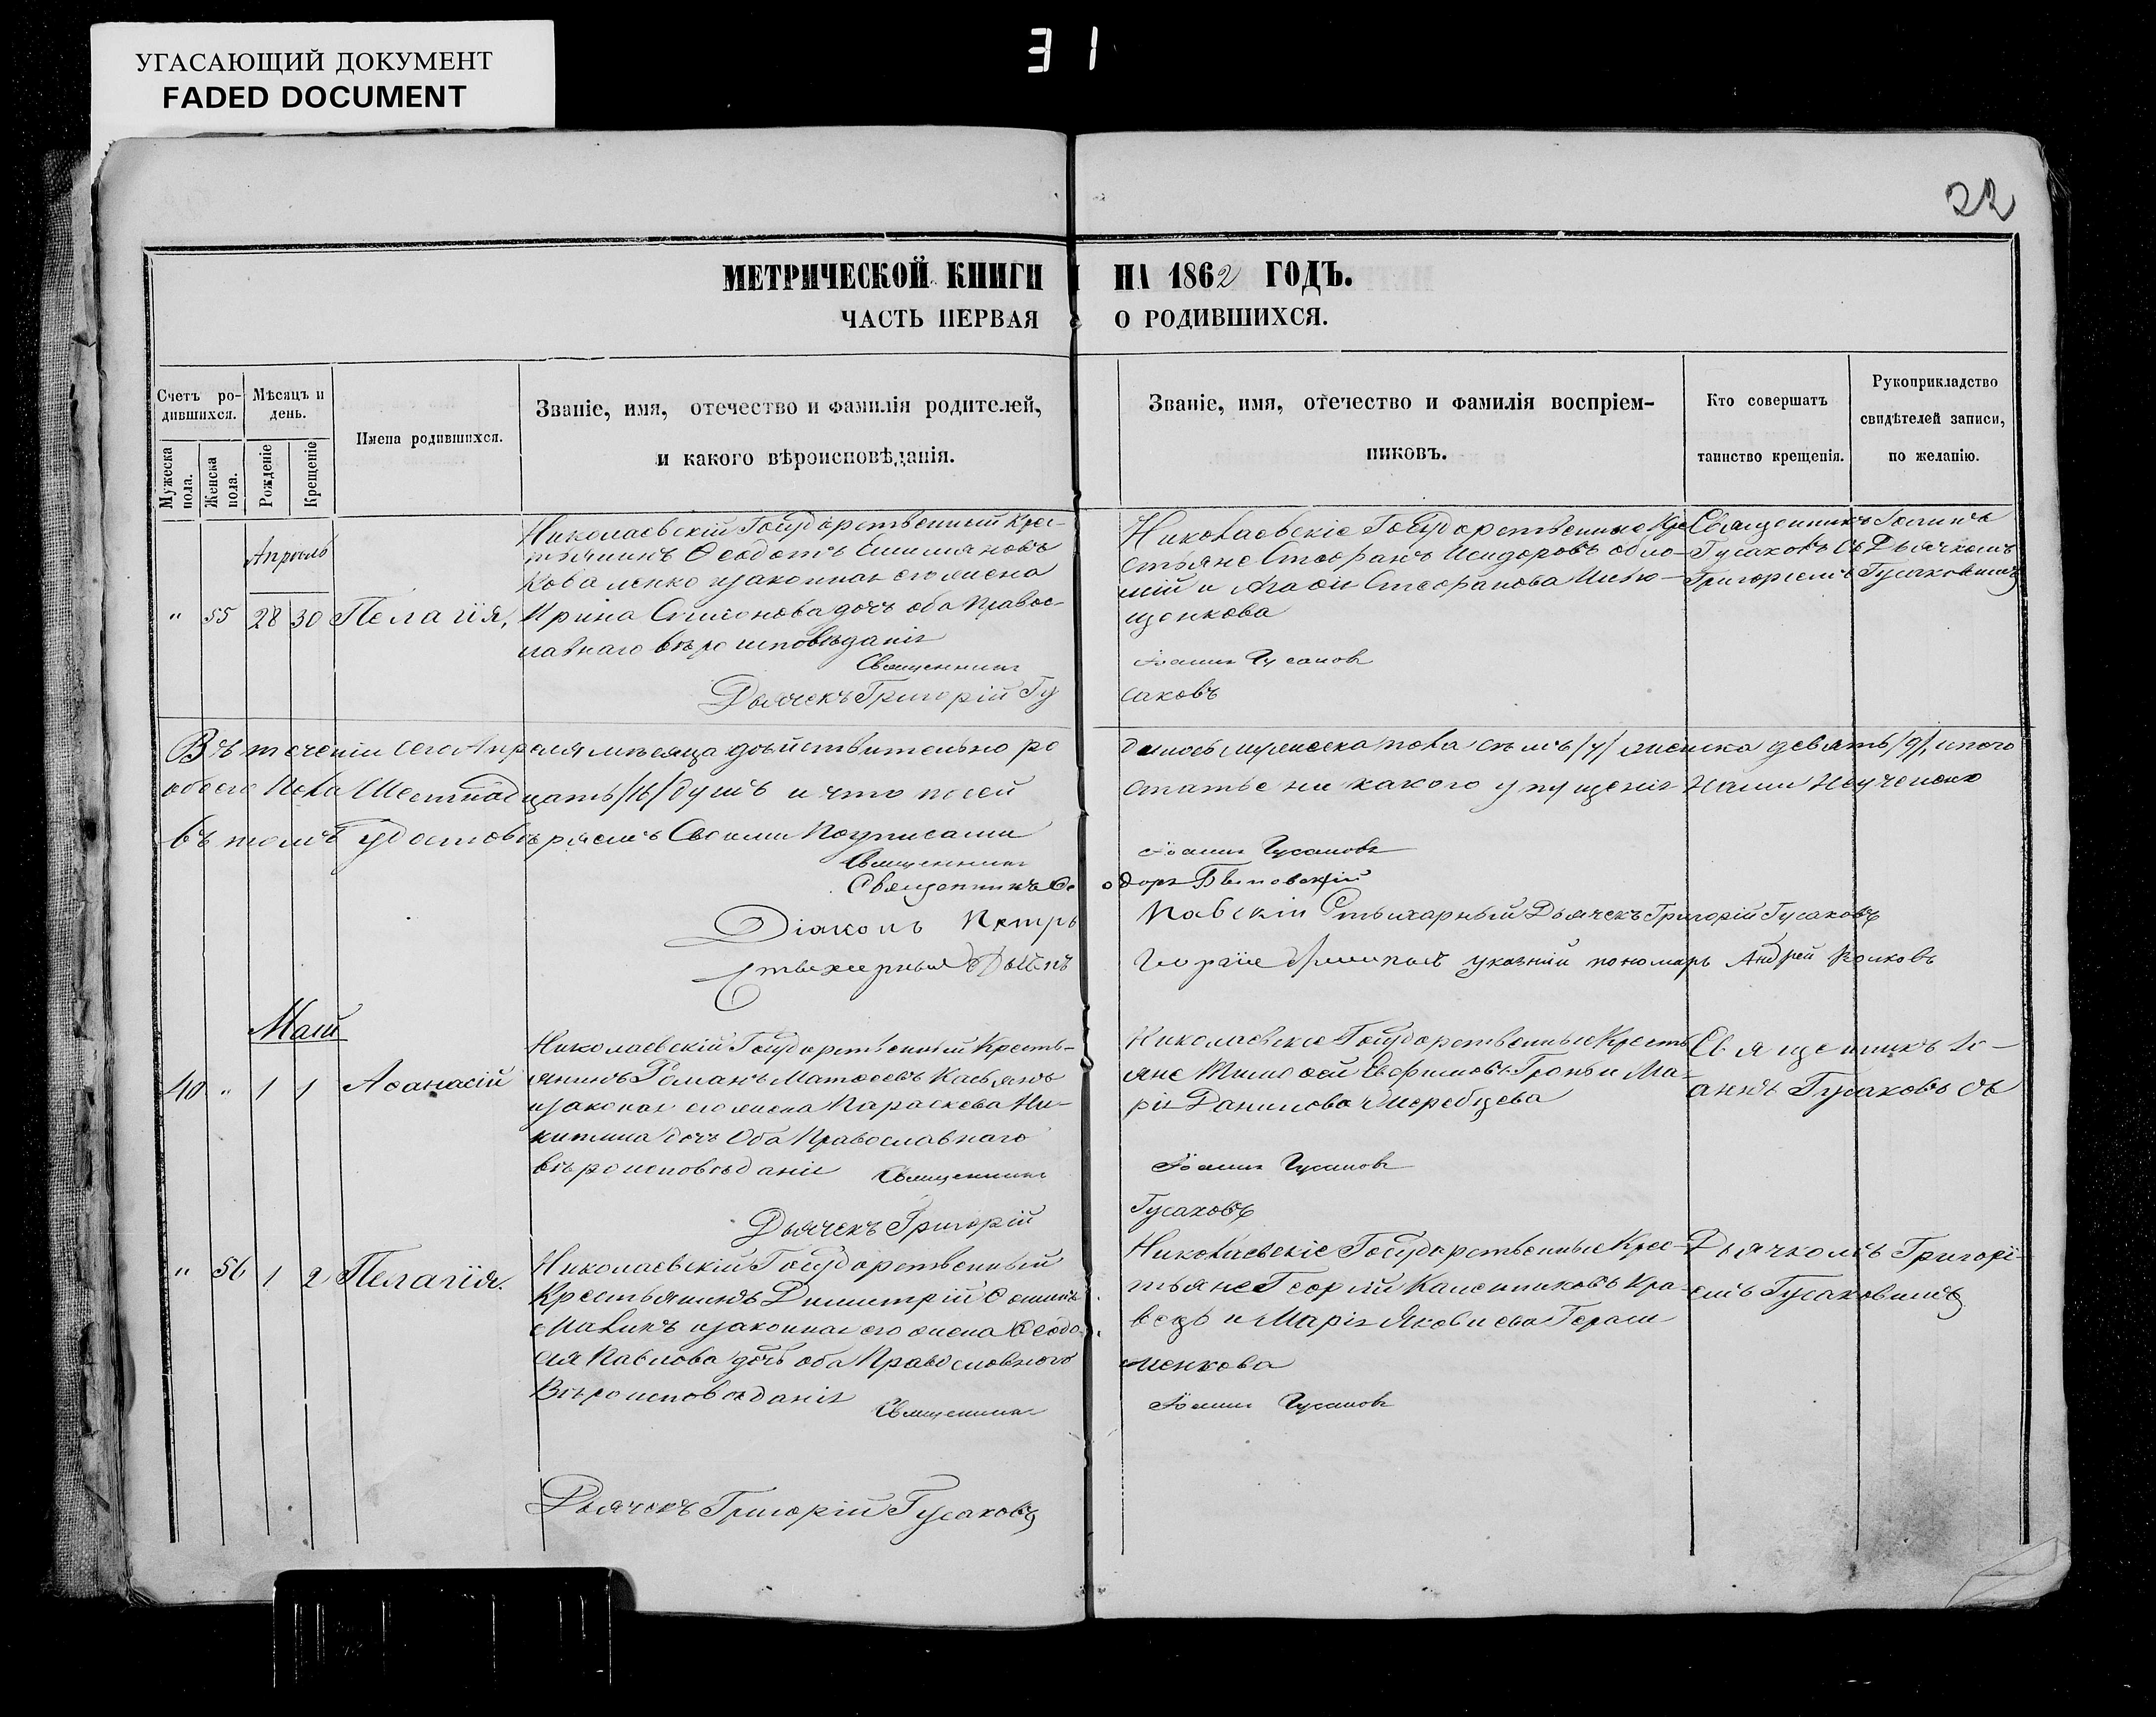 УГАСАЮЩИЙ ДОКУМЕНТ
FADED DOCUMENT
31
22
МЕТРИЧЕСКОЙ КНИГИ НА 1862 ГОДЪ.
ЧАСТЬ ПЕРВАЯ О РОДИВШИХСЯ.
Счетъ родившихся.
Мужеска пола.
Женска пола.
Мѣсяцъ и день.
Рожденіе
Крещеніе
Имена родившихся.
Званіе, имя, отечество и фамилія родителей,
и какого вѣроисповѣданія.
Званіе, имя, отечество и фамилія воспріем-
никовъ.
Кто совершатъ
таинство крещенія.
Рукоприкладство
свидѣтелей записи,
по желанію.
Апрель
" 55 28 30 Пелагія,
Николаевскій Государственный Крес-
тьянинъ Ѳеодотъ Емилияновъ
Коваленко изаконная его жена
Ирина Симонова дочь оба правос-
лавнаго вѣроисповѣданія
Священникъ
Дьячекъ Григорій Гу
Николаевскіе Государственные Кре
стьяне Стефанъ Исидоровъ
и Агафія Стефанова
щенкова
Іоаннъ Гусаковъ
саковъ
Священникъ Іоаннъ
Гусаковъ съ Дьячкомъ
Григоріемъ Гусаковымъ
Въ теченіи сего Апреля мѣсяца дѣйствительно ро
дилось мужеска пола семь /7/ женска девять /9/, итого
обоего пола Шестнадцать /16/ душъ и что по сей
статье ни какого упущенія нами неучинено
въ томъ удостовѣряемъ Своими Подписами
Священникъ Іоаннъ Гусаковъ
Священникъ Ѳеодоръ
Діаконъ Петръ
Стихарный Дьячекъ Григорій Гусаковъ
указный пономарь Андрей Волковъ
Маій
40 " 1 1 Аѳанасій
Николаевскій Государственный Кресть-
янинъ Романъ Матѳеевъ Касьянъ
изаконая его жена Параскева Ни-
китина дочь Оба Православнаго
вѣроисповѣданія Священникъ
Дьячекъ Григорій
Николаевскіе Государственные Кресть
яне Тимоѳей Евфимовъ Гронь и Ма-
рія Данилова Жеребцева
Іоаннъ Гусаковъ
Гусаковъ
Священникъ Іо-
аннъ Гусаковъ съ
" 56 1 2 Пелагія.
Николаевскій Государственный
Крестьянинъ Димитрій Ѳоминъ
Маликъ изаконная его жена Ѳеодо-
сія Павлова дочь оба Православного
Вѣроисповѣданія
Священникъ
Николаевскіе Государственные Крес-
тьяне Георгій Калениковъ Кра-
вецъ и Марія Яковлева Гераси
менкова
Іоаннъ Гусаковъ
Дьячкомъ Григорі-
емъ Гусаковымъ
Дьячекъ Григорій Гусаковъ